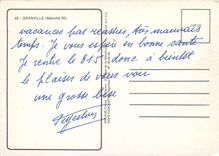 45 - GRANVILLE (Manche 50)
vacances pas réussies, très mauvais
temps. Je vous espère en bonne santé
Je rentre le 31.5 donc à bientôt
le plaisir de vous voir
une grosse bise